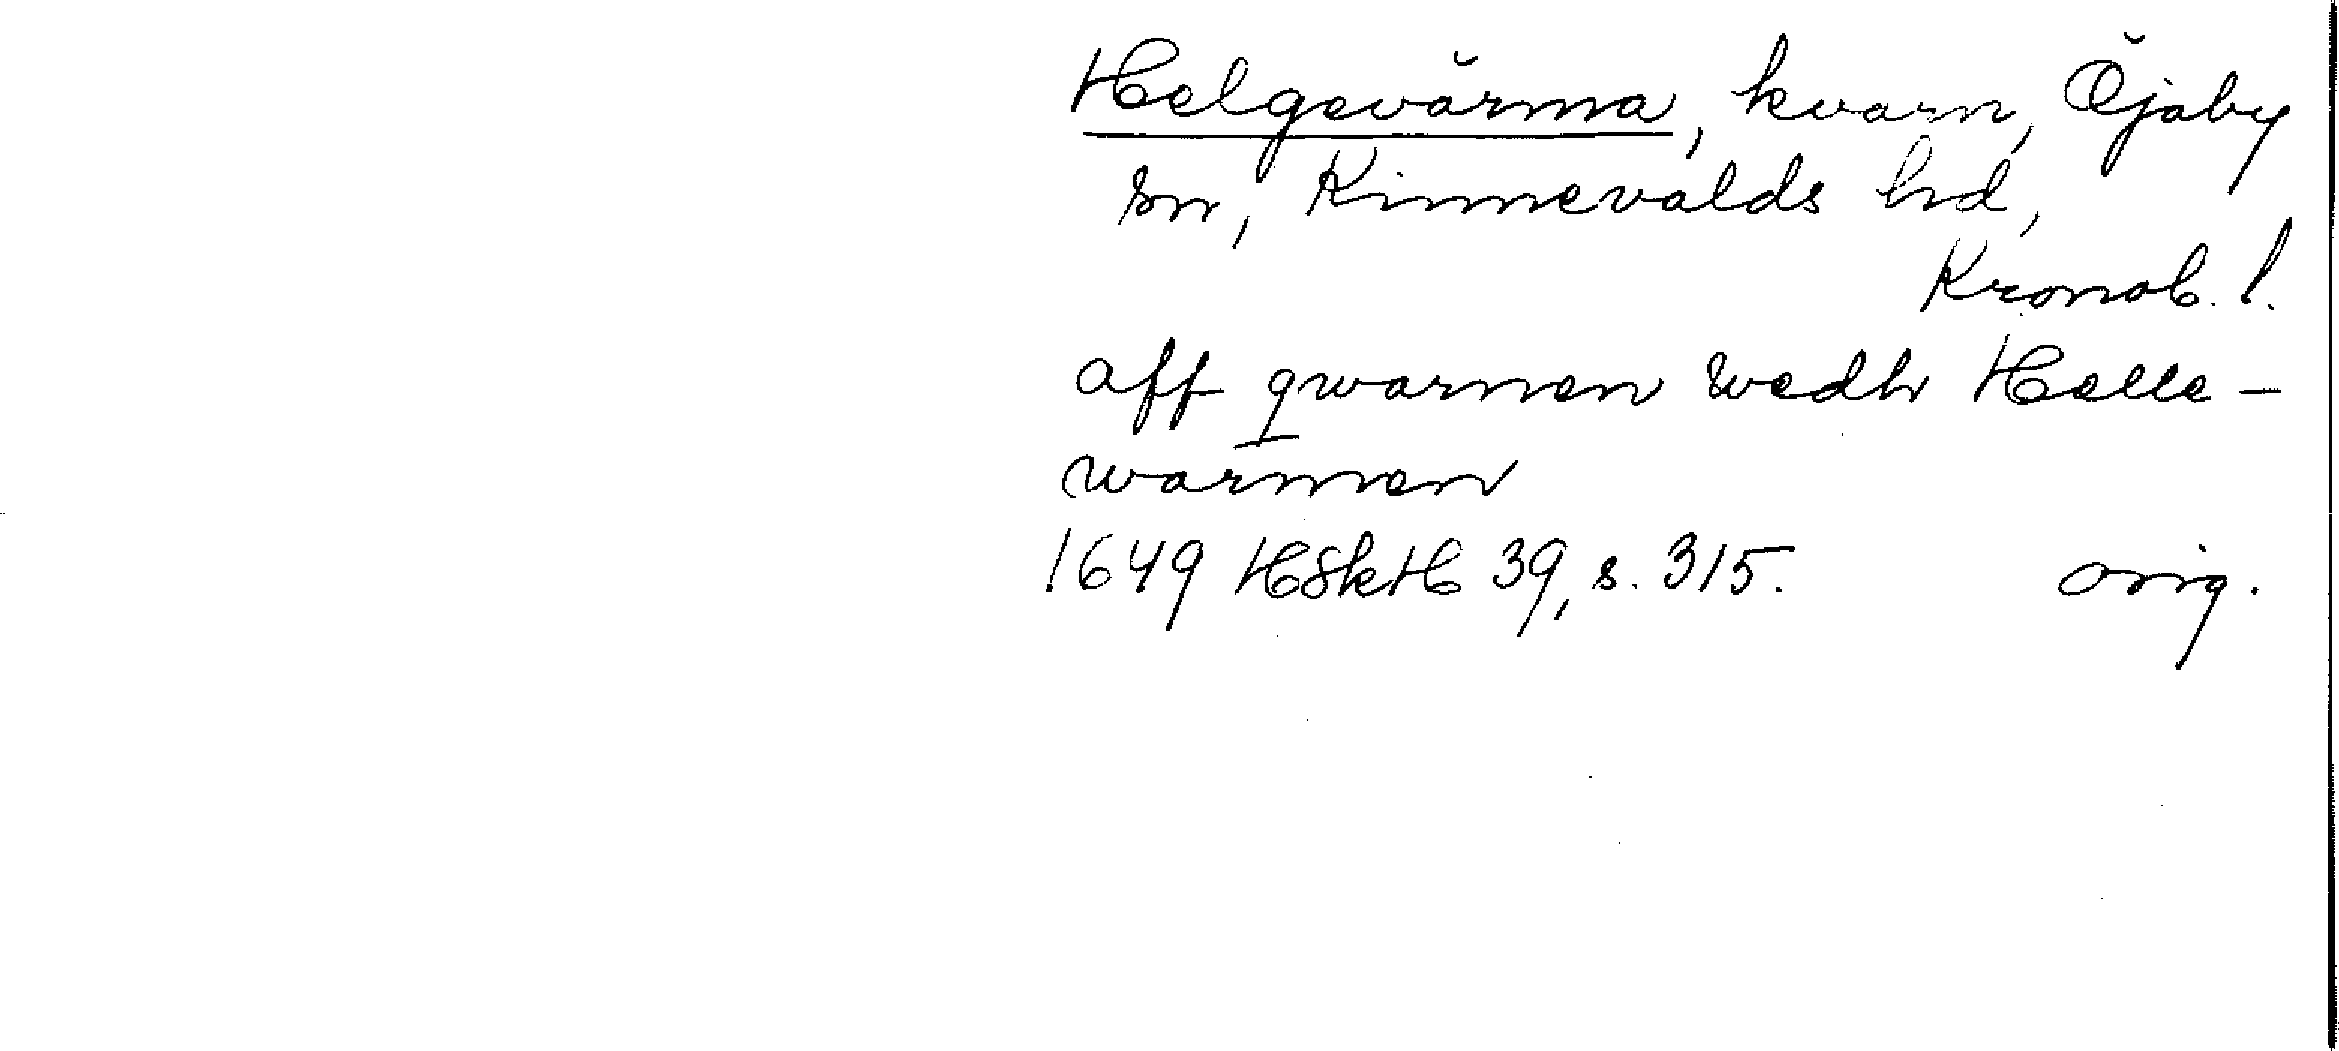 Helgevärma, kvarn, Öjaby
sn, Kinnevalds hd,
Kronob. l.
aff qwarnen wedh Helle-
warmen
1649 HSkH 39, s. 315. orig.